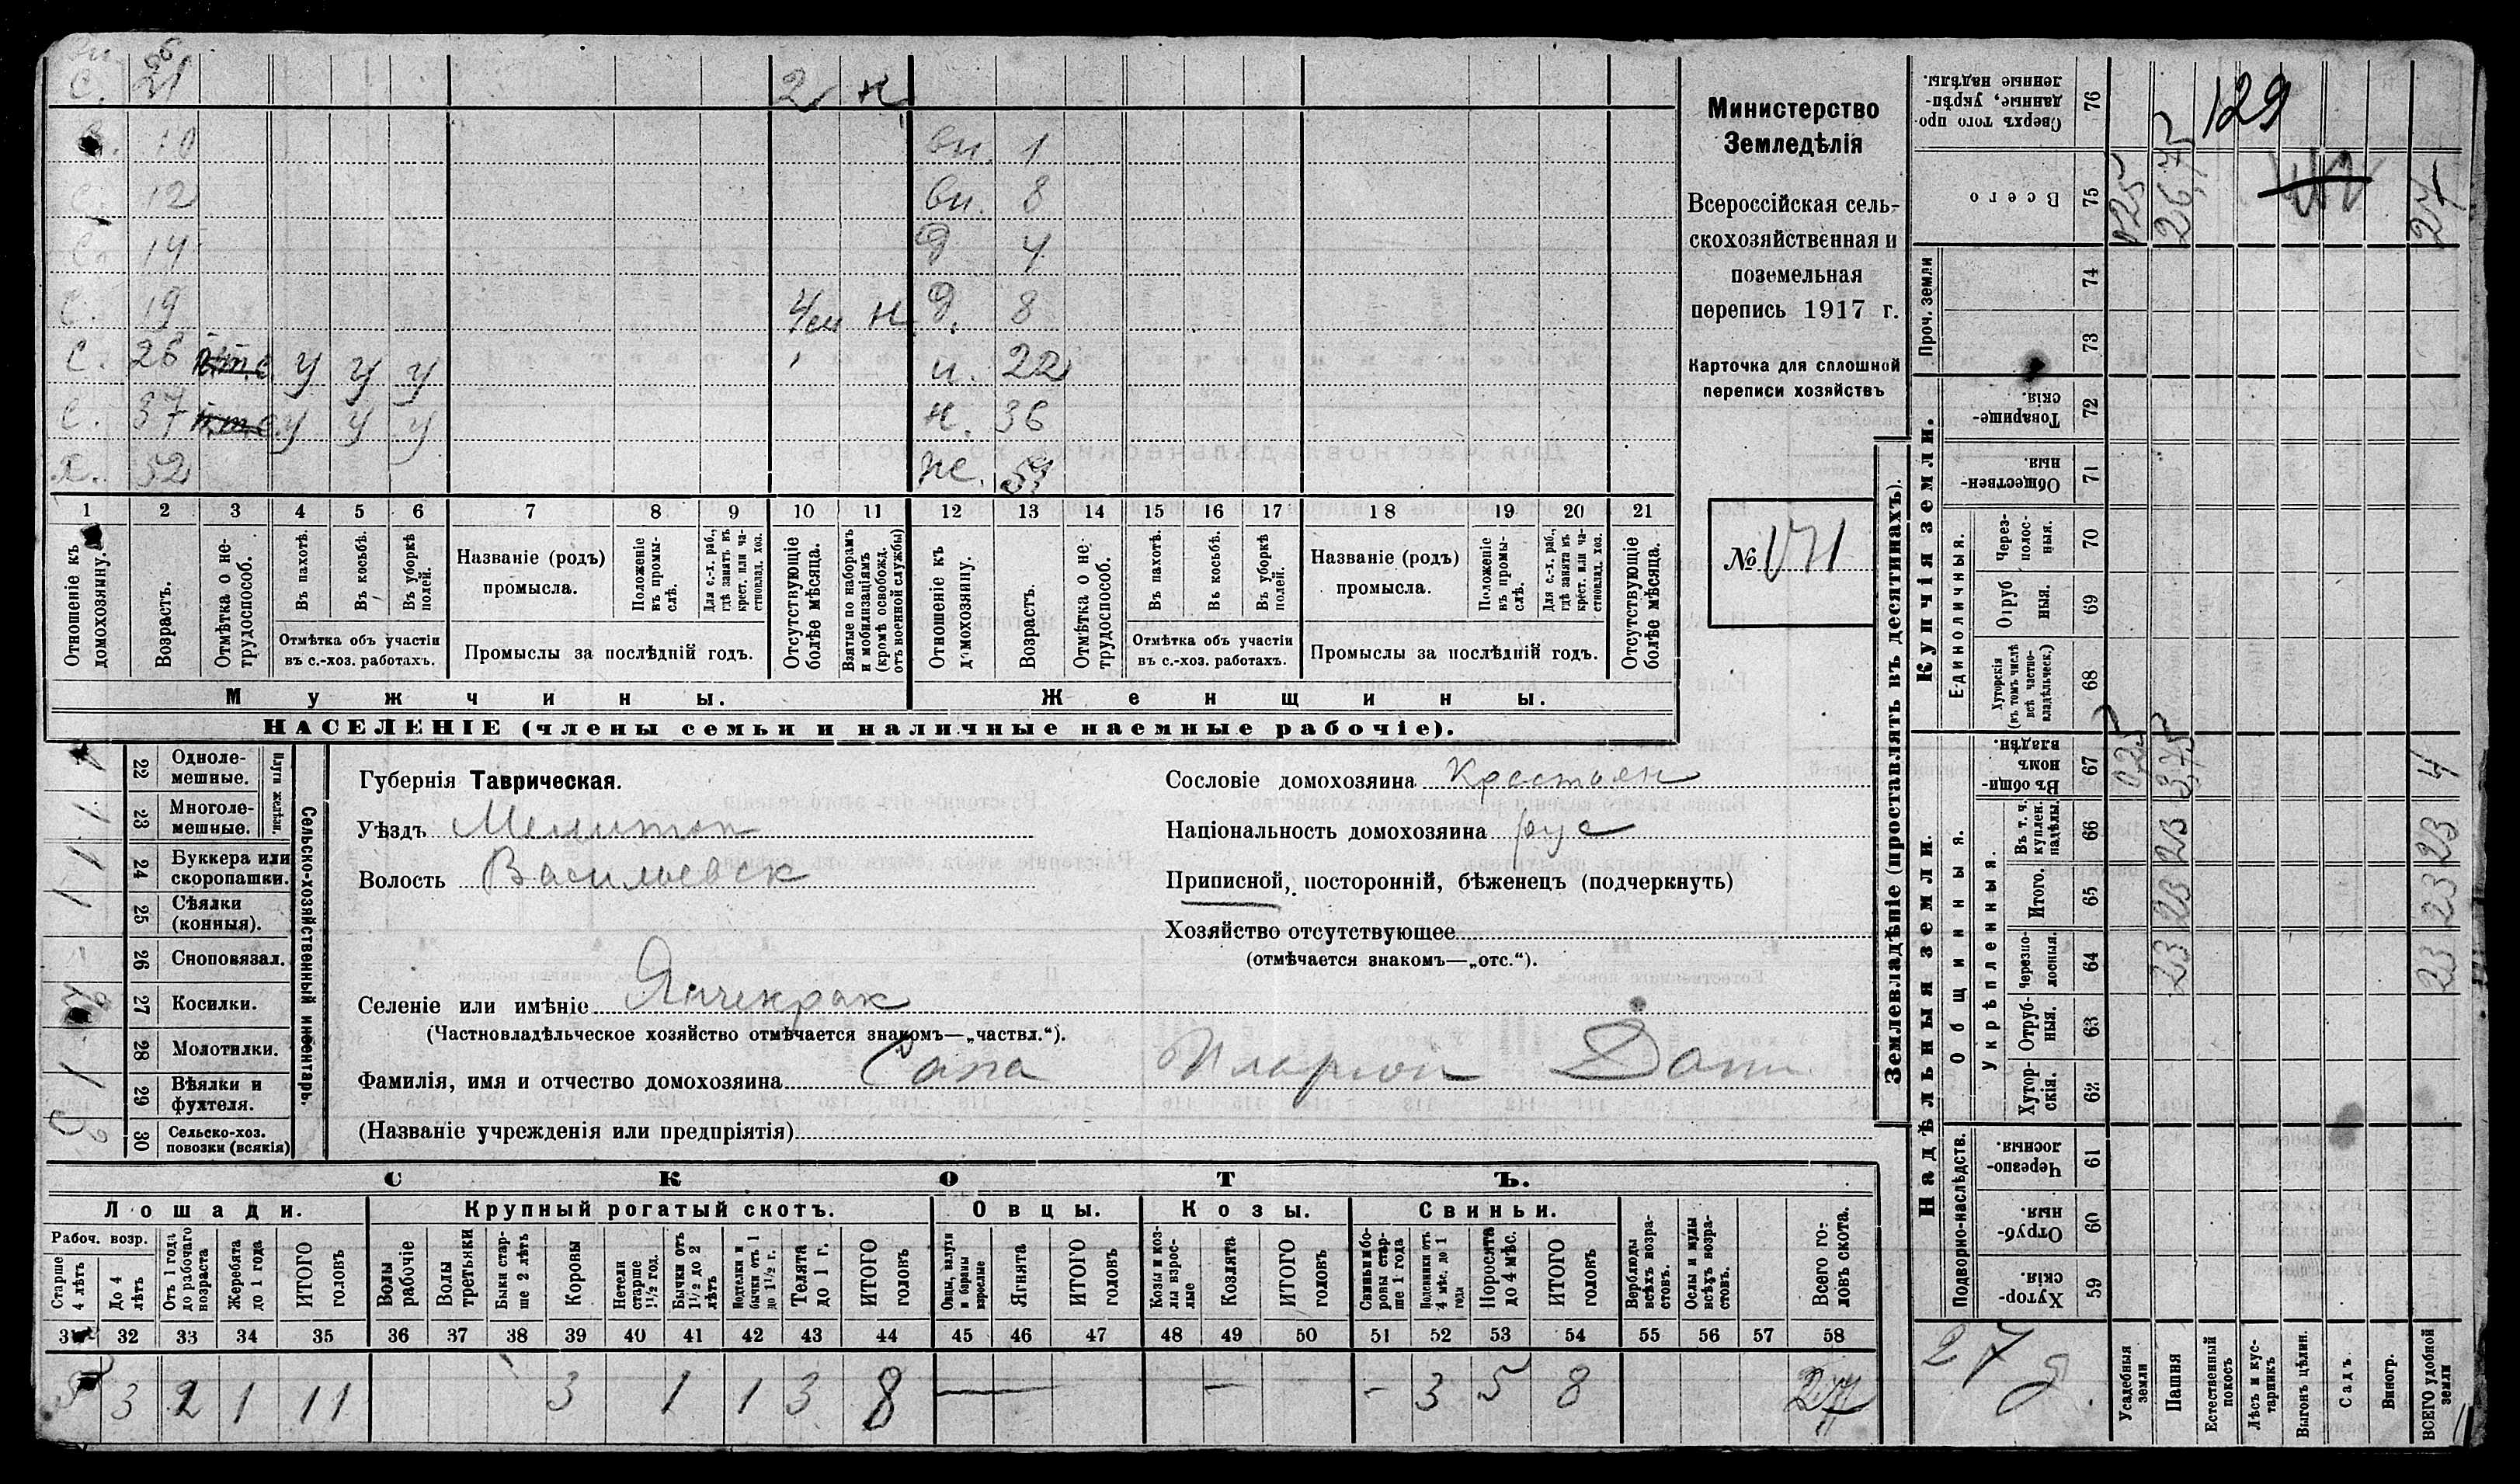 С. 21 2 н
10 вн. 1
С. 12 вн. 8
С. 14 Д 4
С. 19 4 см н Д. 8
С. 26 у у у н. 22
С. 37 у у у н. 36
Х. 52 ж. 54
1 2 3 4 5 6 7 8 9 10 11 12 13 14 15 16 17 18 19 20 21
Отношеніе къ домохозяину.
Возрастъ.
Отмѣтка о нетрудоспособ.
Въ пахотѣ.
Въ косьбѣ.
Въ уборкѣ полей.
Отмѣтка объ участіи въ с.-хоз. работахъ.
Названіе (родъ) промысла.
Положеніе въ промыслѣ.
Для с.-х. раб., гдѣ занятъ въ крест. или частновлад. хоз.
Промыслы за послѣдній годъ.
Отсутствующіе болѣе мѣсяца.
Взятые по наборамъ и мобилизаціямъ (кромѣ освобожд. отъ военной службы)
Отношеніе къ домохозяину.
Возрастъ.
Отмѣтка о не трудоспособ.
Въ пахотѣ.
Въ косьбѣ.
Въ уборкѣ полей.
Отмѣтка объ участіи въ с.-хоз. работахъ.
Названіе (родъ) промысла.
Положеніе въ промыслѣ.
Для с.-х. раб., гдѣ занятъ въ крест. или частновлад. хоз.
Промыслы за послѣдній годъ.
Отсутствующіе болѣе мѣсяца.
Мужчины.
Женщины.
НАСЕЛЕНІЕ (члены семьи и наличные наемные рабочіе).
Министерство
Земледѣлія
Всероссійская сель-
скохозяйственная и
поземельная
перепись 1917 г.
Карточка для сплошной
переписи хозяйствъ
№ 171
Плуги желѣзн.
22 Однолемешные. 1
23 Многолемешные. 1
24 Буккера или скоропашки. 1
25 Сѣялки (конныя). 1
26 Сноповязал.
27 Косилки.
28 Молотилки.
29 Вѣялки и фухтеля. 1
30 Сельско-хоз. повозки (всякія) 2
Сельско-хозяйственный инвентарь.
Губернія Таврическая.
Уѣздъ Мелитоп
Волость Васильевск
Селеніе или имѣніе Янчекрак
(Частновладѣльческое хозяйство отмѣчается знакомъ—„частвл.“).
Фамилія, имя и отчество домохозяина Сапа Иларион Дани
(Названіе учрежденія или предпріятія)
Сословіе домохозяина Крестьян
Національность домохозяина рус
Приписной, посторонній, бѣженецъ (подчеркнуть)
Хозяйство отсутствующее
(отмѣчается знакомъ—„отс.“).
СКОТЪ.
Лошади. Крупный рогатый скотъ. Овцы. Козы. Свиньи.
Рабоч. возр.
Старше 4 лѣтъ
До 4 лѣтъ
Отъ 1 года до рабочаго возраста
Жеребята до 1 года
ИТОГО головъ
Волы рабочіе
Волы третьяки
Быки старше 2 лѣтъ
Коровы
Нетели старше 1½ год.
Бычки отъ 1½ до 2 лѣтъ
Подтелки и бычки отъ 1 до 1½ г.
Телята до 1 г.
ИТОГО головъ
Овцы, валухи и бараны взрослые
Ягнята
ИТОГО головъ
Козы и козлы взрослые
Козлята
ИТОГО головъ
Свиньи и боровы старше 1 года
Подсвинки отъ 4 мѣс. до 1 года
Поросята до 4 мѣс.
ИТОГО головъ
Верблюды всѣхъ возрастовъ.
Ослы и мулы всѣхъ возрастовъ.
Всего головъ скота.
31 32 33 34 35 36 37 38 39 40 41 42 43 44 45 46 47 48 49 50 51 52 53 54 55 56 57 58
5 3 2 1 11 3 1 1 3 8 — — - 3 5 8 27
Землевладѣніе (проставлять въ десятинахъ).
Надѣльныя земли.
Купчія земли.
Проч. земли
Сверхъ того проданные, укрѣпленные надѣлы. 76
129
Всего 75 0,25 26,75 27
74
73
Товарищескія. 72
Общественныя. 71
Единоличныя.
Черезполосныя. 70
Отрубныя. 69
Хуторскія (въ томъ числѣ всѣ частновладѣльческ.) 68
Общинныя.
Въ общинномъ владѣн. 67 0,25 3,75 4
Укрѣпленныя.
Въ т. ч. куплен. надѣлы. 66 23 23
Итого. 65 23 23
Черезполосныя. 64 23 23
Отрубныя. 63
Хуторскія. 62
Подворно-наслѣдств.
Черезполосныя 61
Отрубныя. 60
Хуторскія. 59
27
Усадебныя земли
Пашня
Естественный покосъ
Лѣсъ и кустарникъ
Выгонъ цѣлин.
Садъ.
Виногр.
ВСЕГО удобной земли